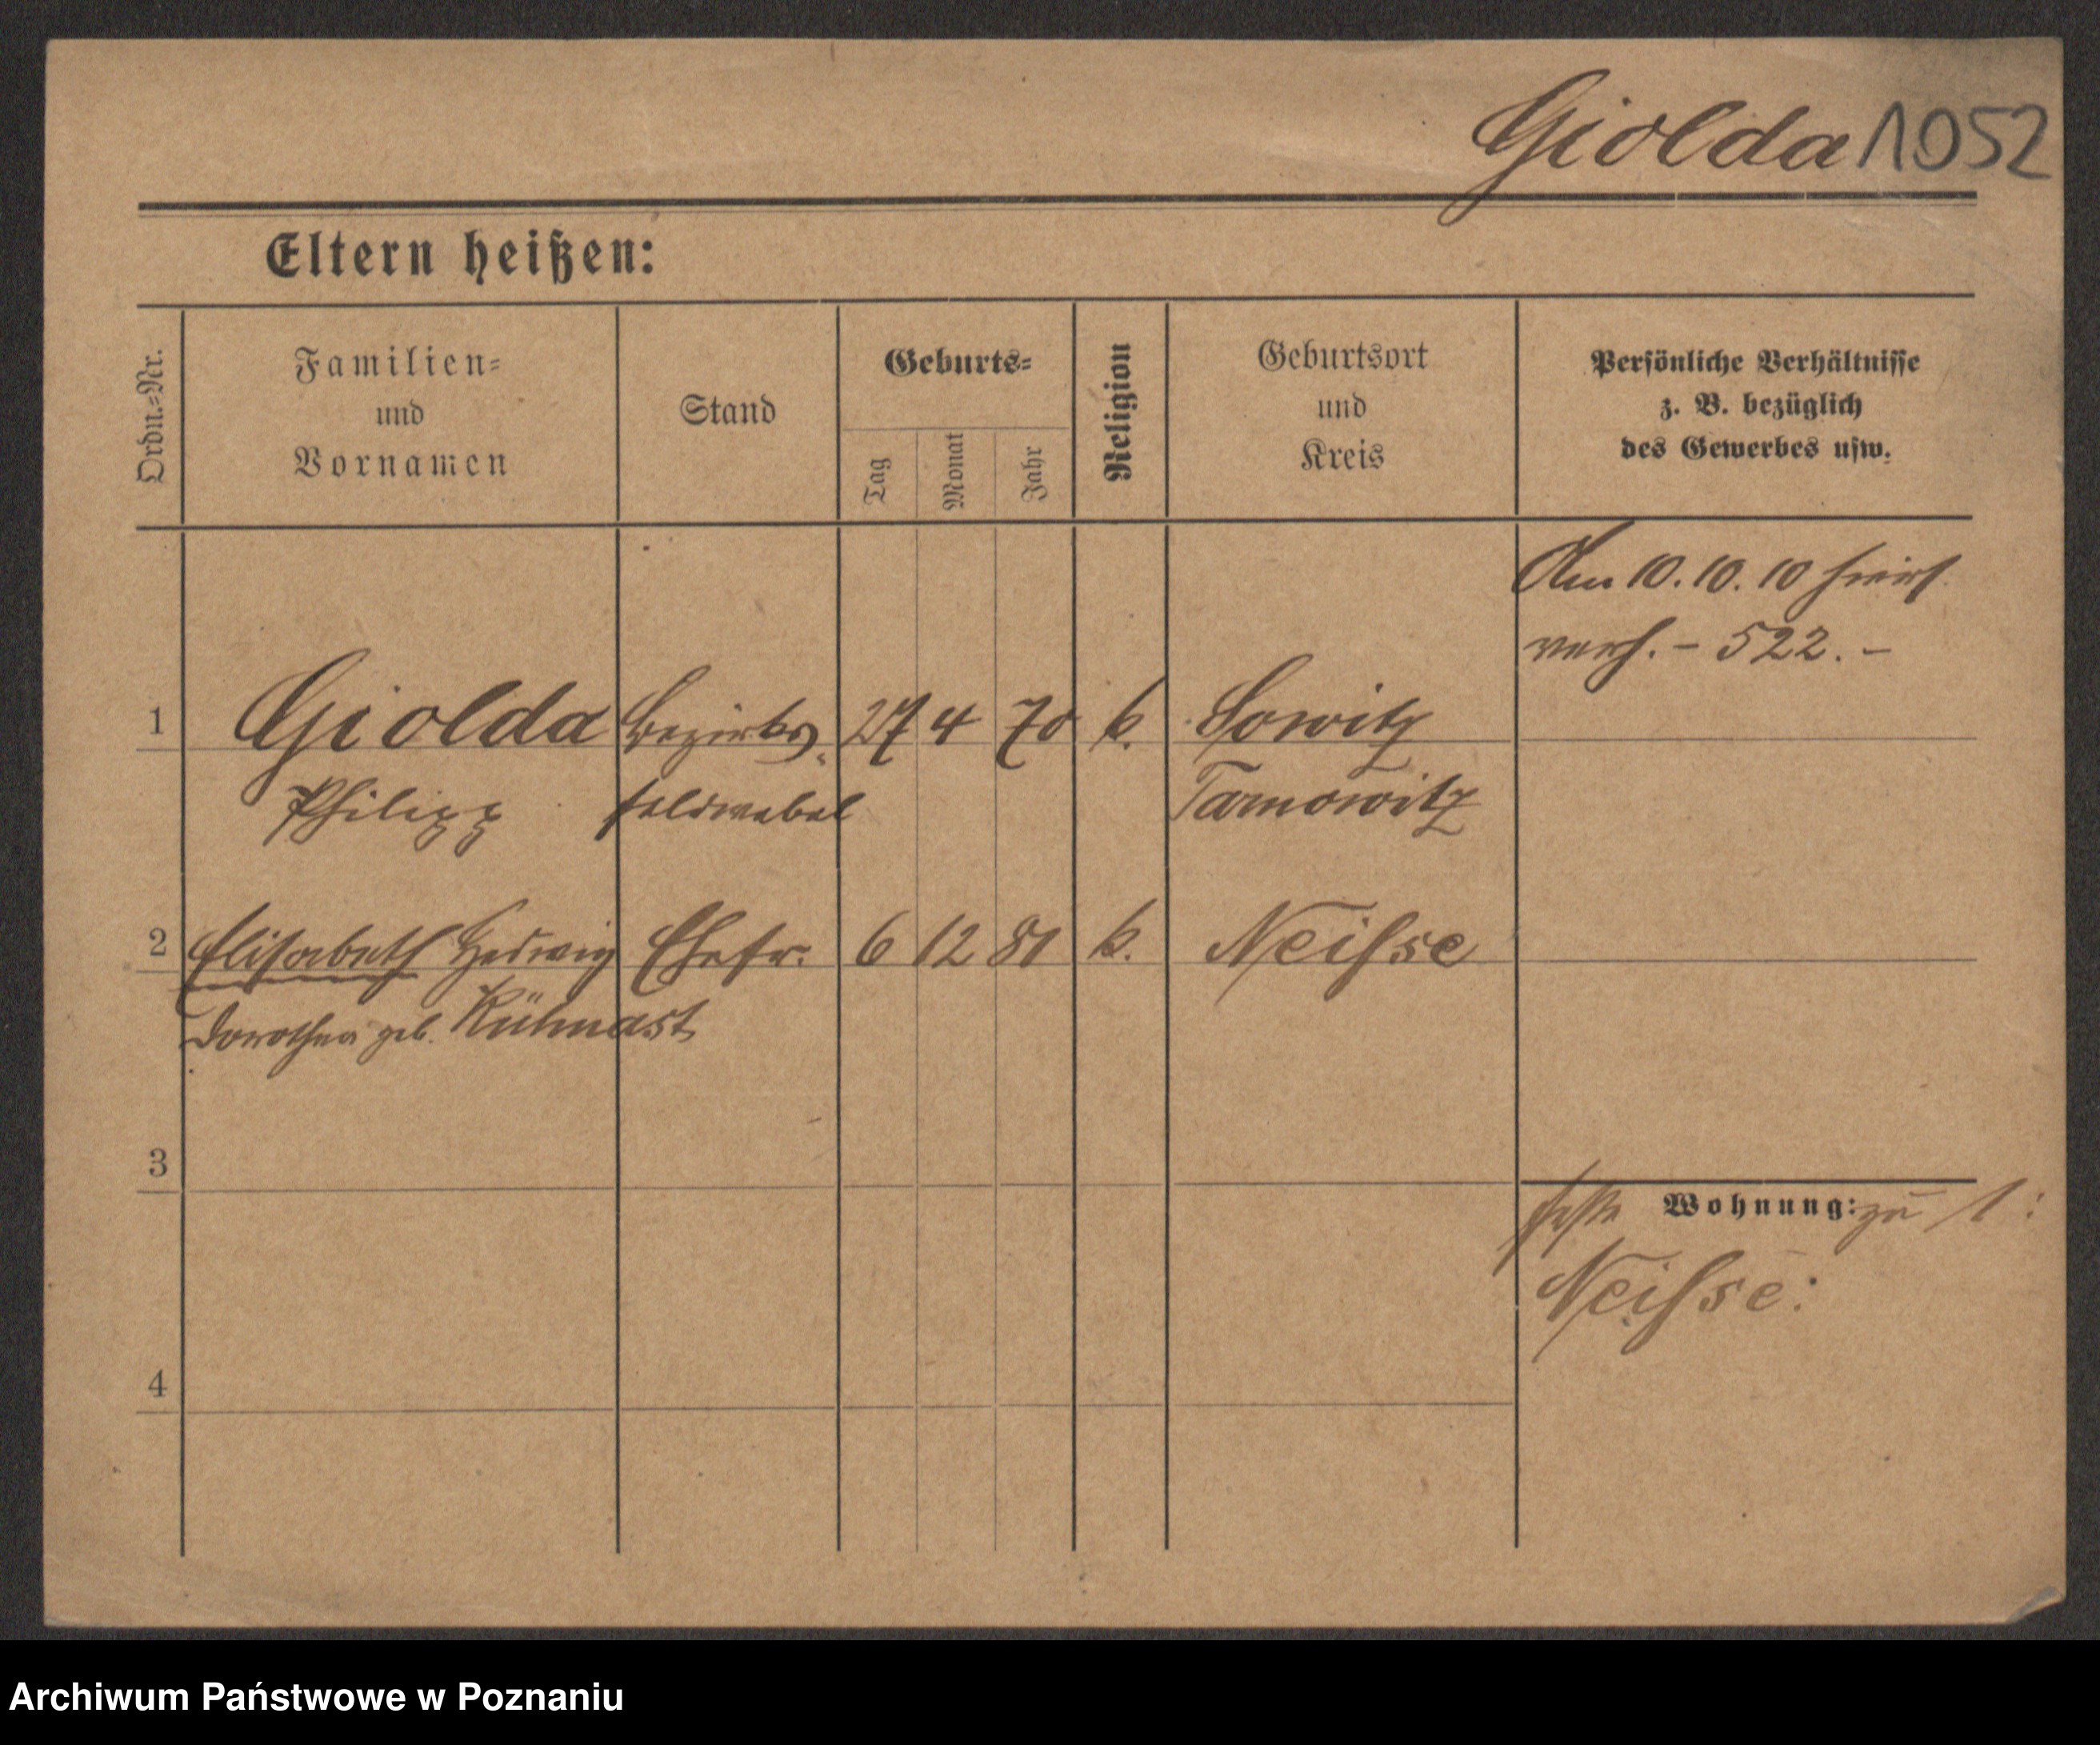 Giolda 1052
Eltern heißen:
Ordn.-Nr.
Familien-
und
Vornamen
Stand
Geburts-
Tag
Monat
Jahr
Religion
Geburtsort
und
Kreis
Persönliche Verhältnisse
z. B. bezüglich
des Gewerbes usw.
Am 10. 10. 10 hier
verh. - 522. -
1 Giolda Bezirks- 27 4 70 k. Sowitz
Philipp feldwebel Tarnowitz
2 Elisabeth Hedwig Ehefr. 6 12 81 k. Neisse
Dorothea geb. Kühnast
3
feste Wohnung: zu 1:
Neisse:
4
Archiwum Państwowe w Poznaniu